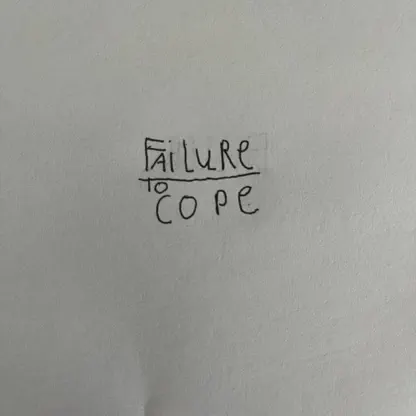 FAiLURe
TO
COPe